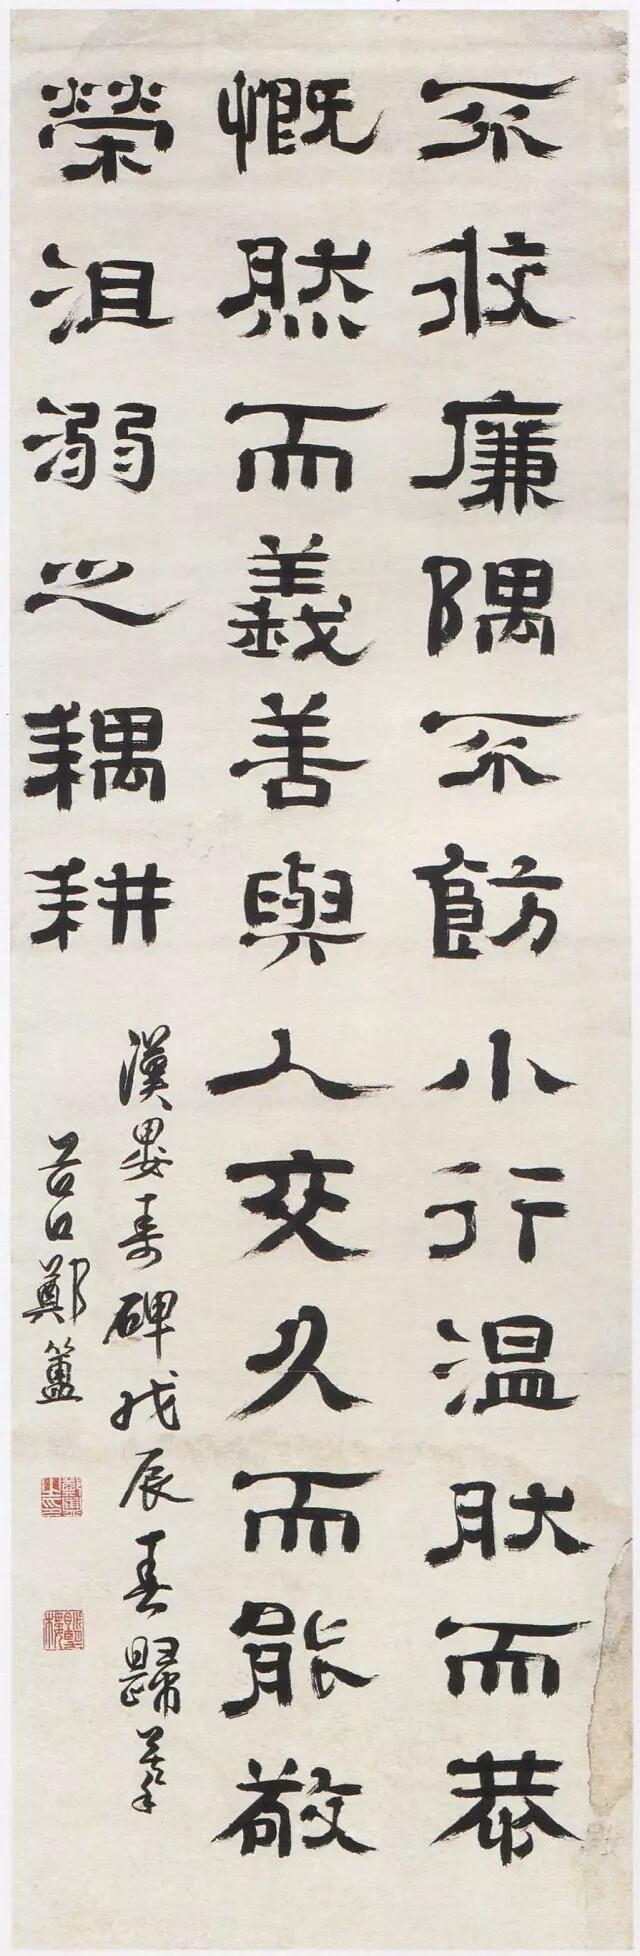 不攸廉隅不飭小行温肰而恭
慨然而義善與人交久而能敬
榮沮溺之耦耕
漢婁壽碑戊辰春歸摹
谷口鄭簠